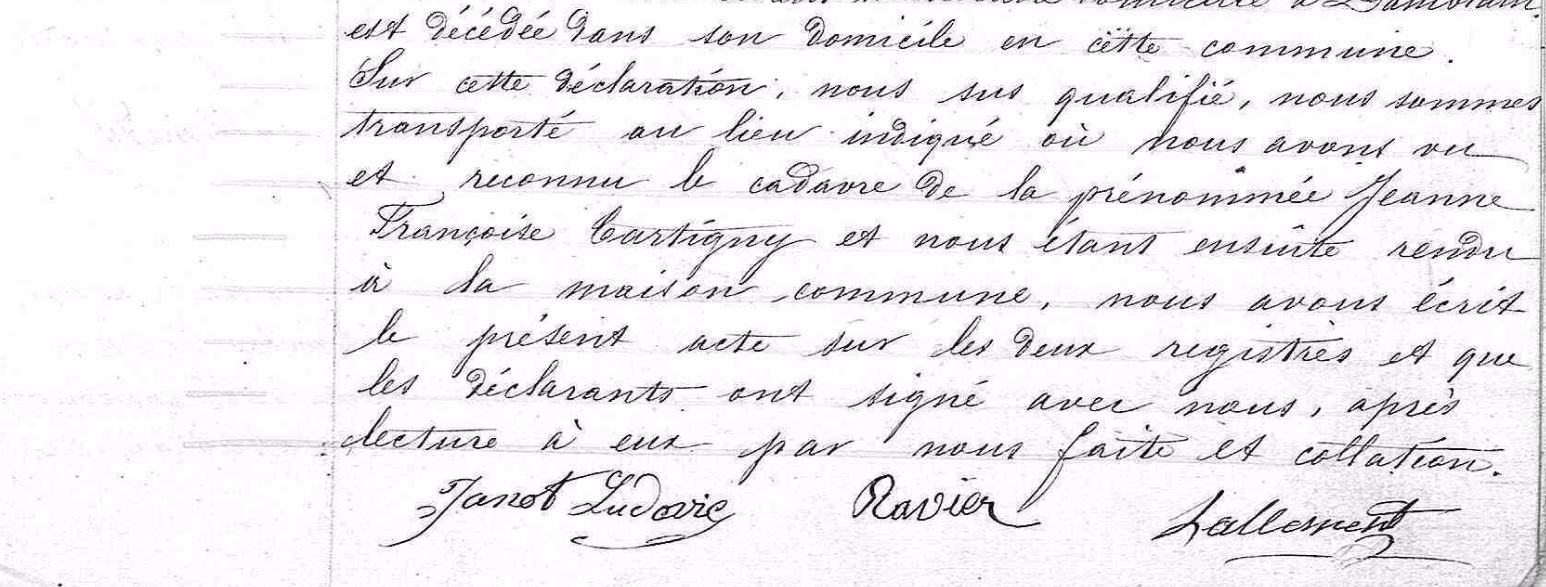 est décédée dans son domicile en cette commune.
Sur cette déclaration, nous sus qualifié, nous sommes
transporté au lieu indiqué où nous avons vu
et reconnu le cadavre de la prénommée Jeanne
Françoise Cartigny et nous étant ensuite rendu
à la maison commune, nous avons écrit
le présent acte sur les deux registres et que
les déclarants ont signé avec nous, après
lecture à eux par nous faite et collation.
Janot Ludovic Ravier Lallement